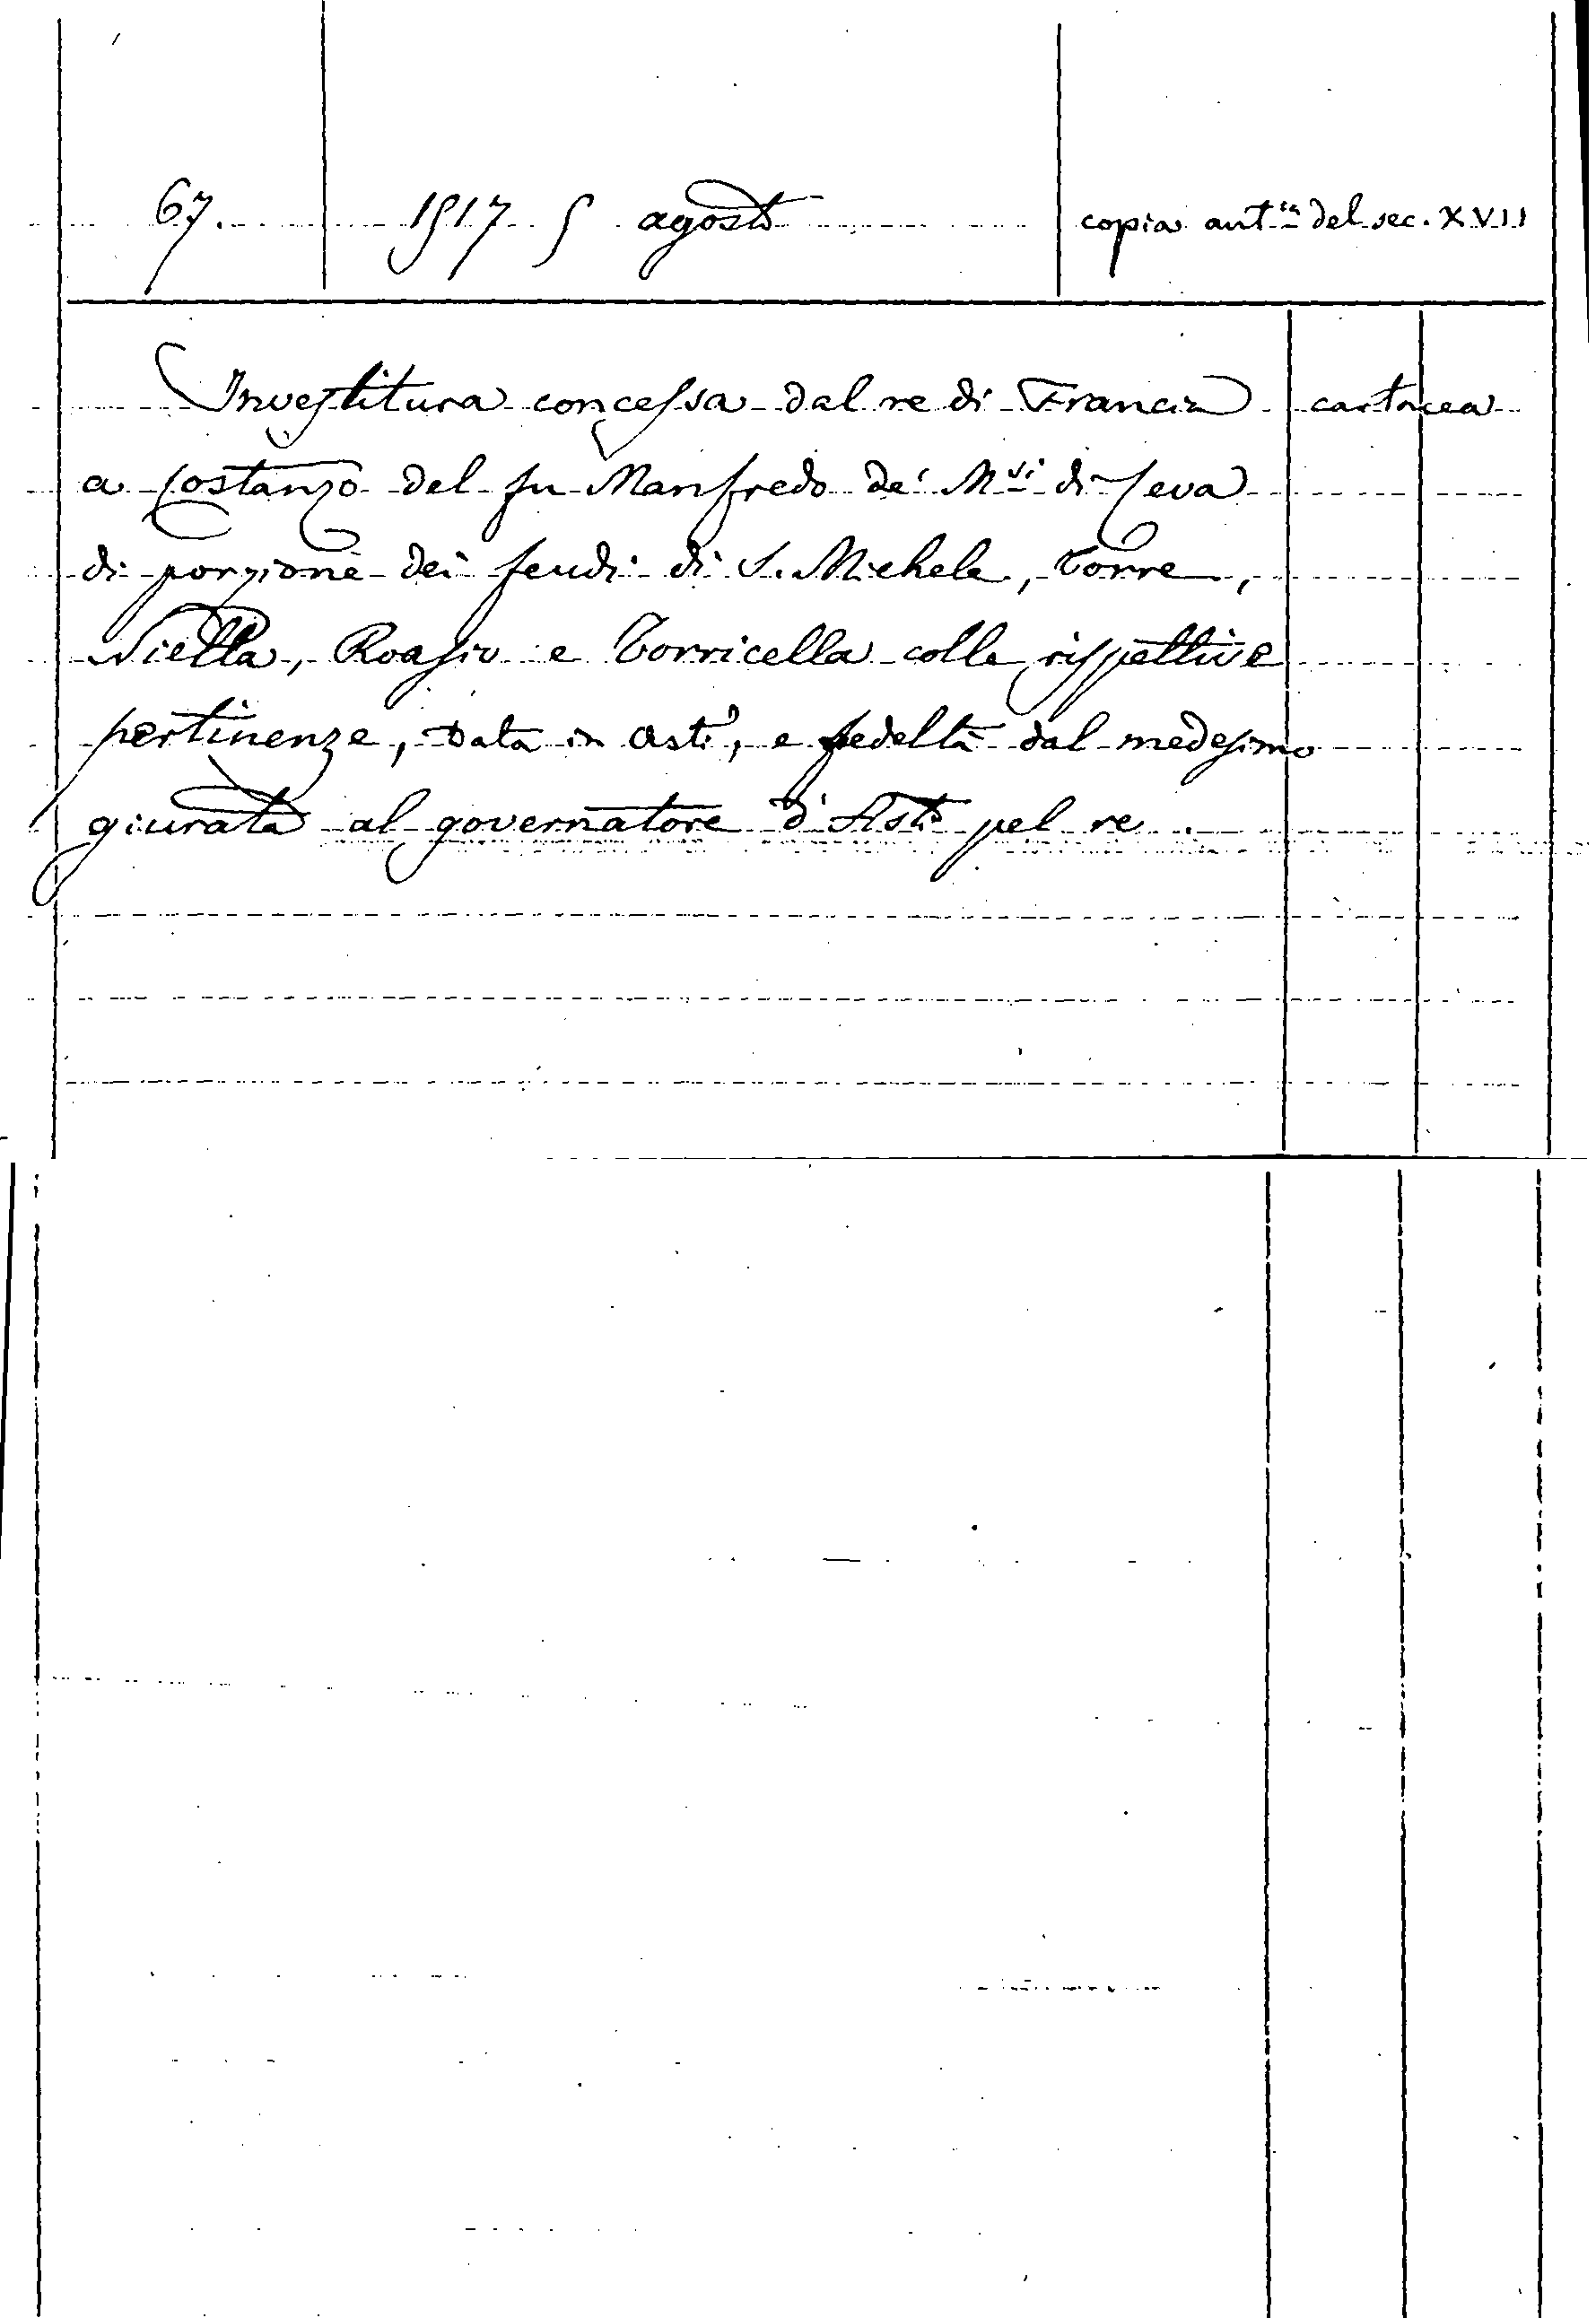 67. 1517 5 agosto copia aut.ca del sec. XVII
Investitura concessa dal re di Francia cartacea
a Costanzo del fu Manfredo de' M.si di Ceva
di porzione dei feudi di S. Michele, Torre,
Niella, Roasio e Torricella colle rispettive
pertinenze, data in Asti, e fedeltà dal medesimo
giurata al governatore d'Asti pel re.